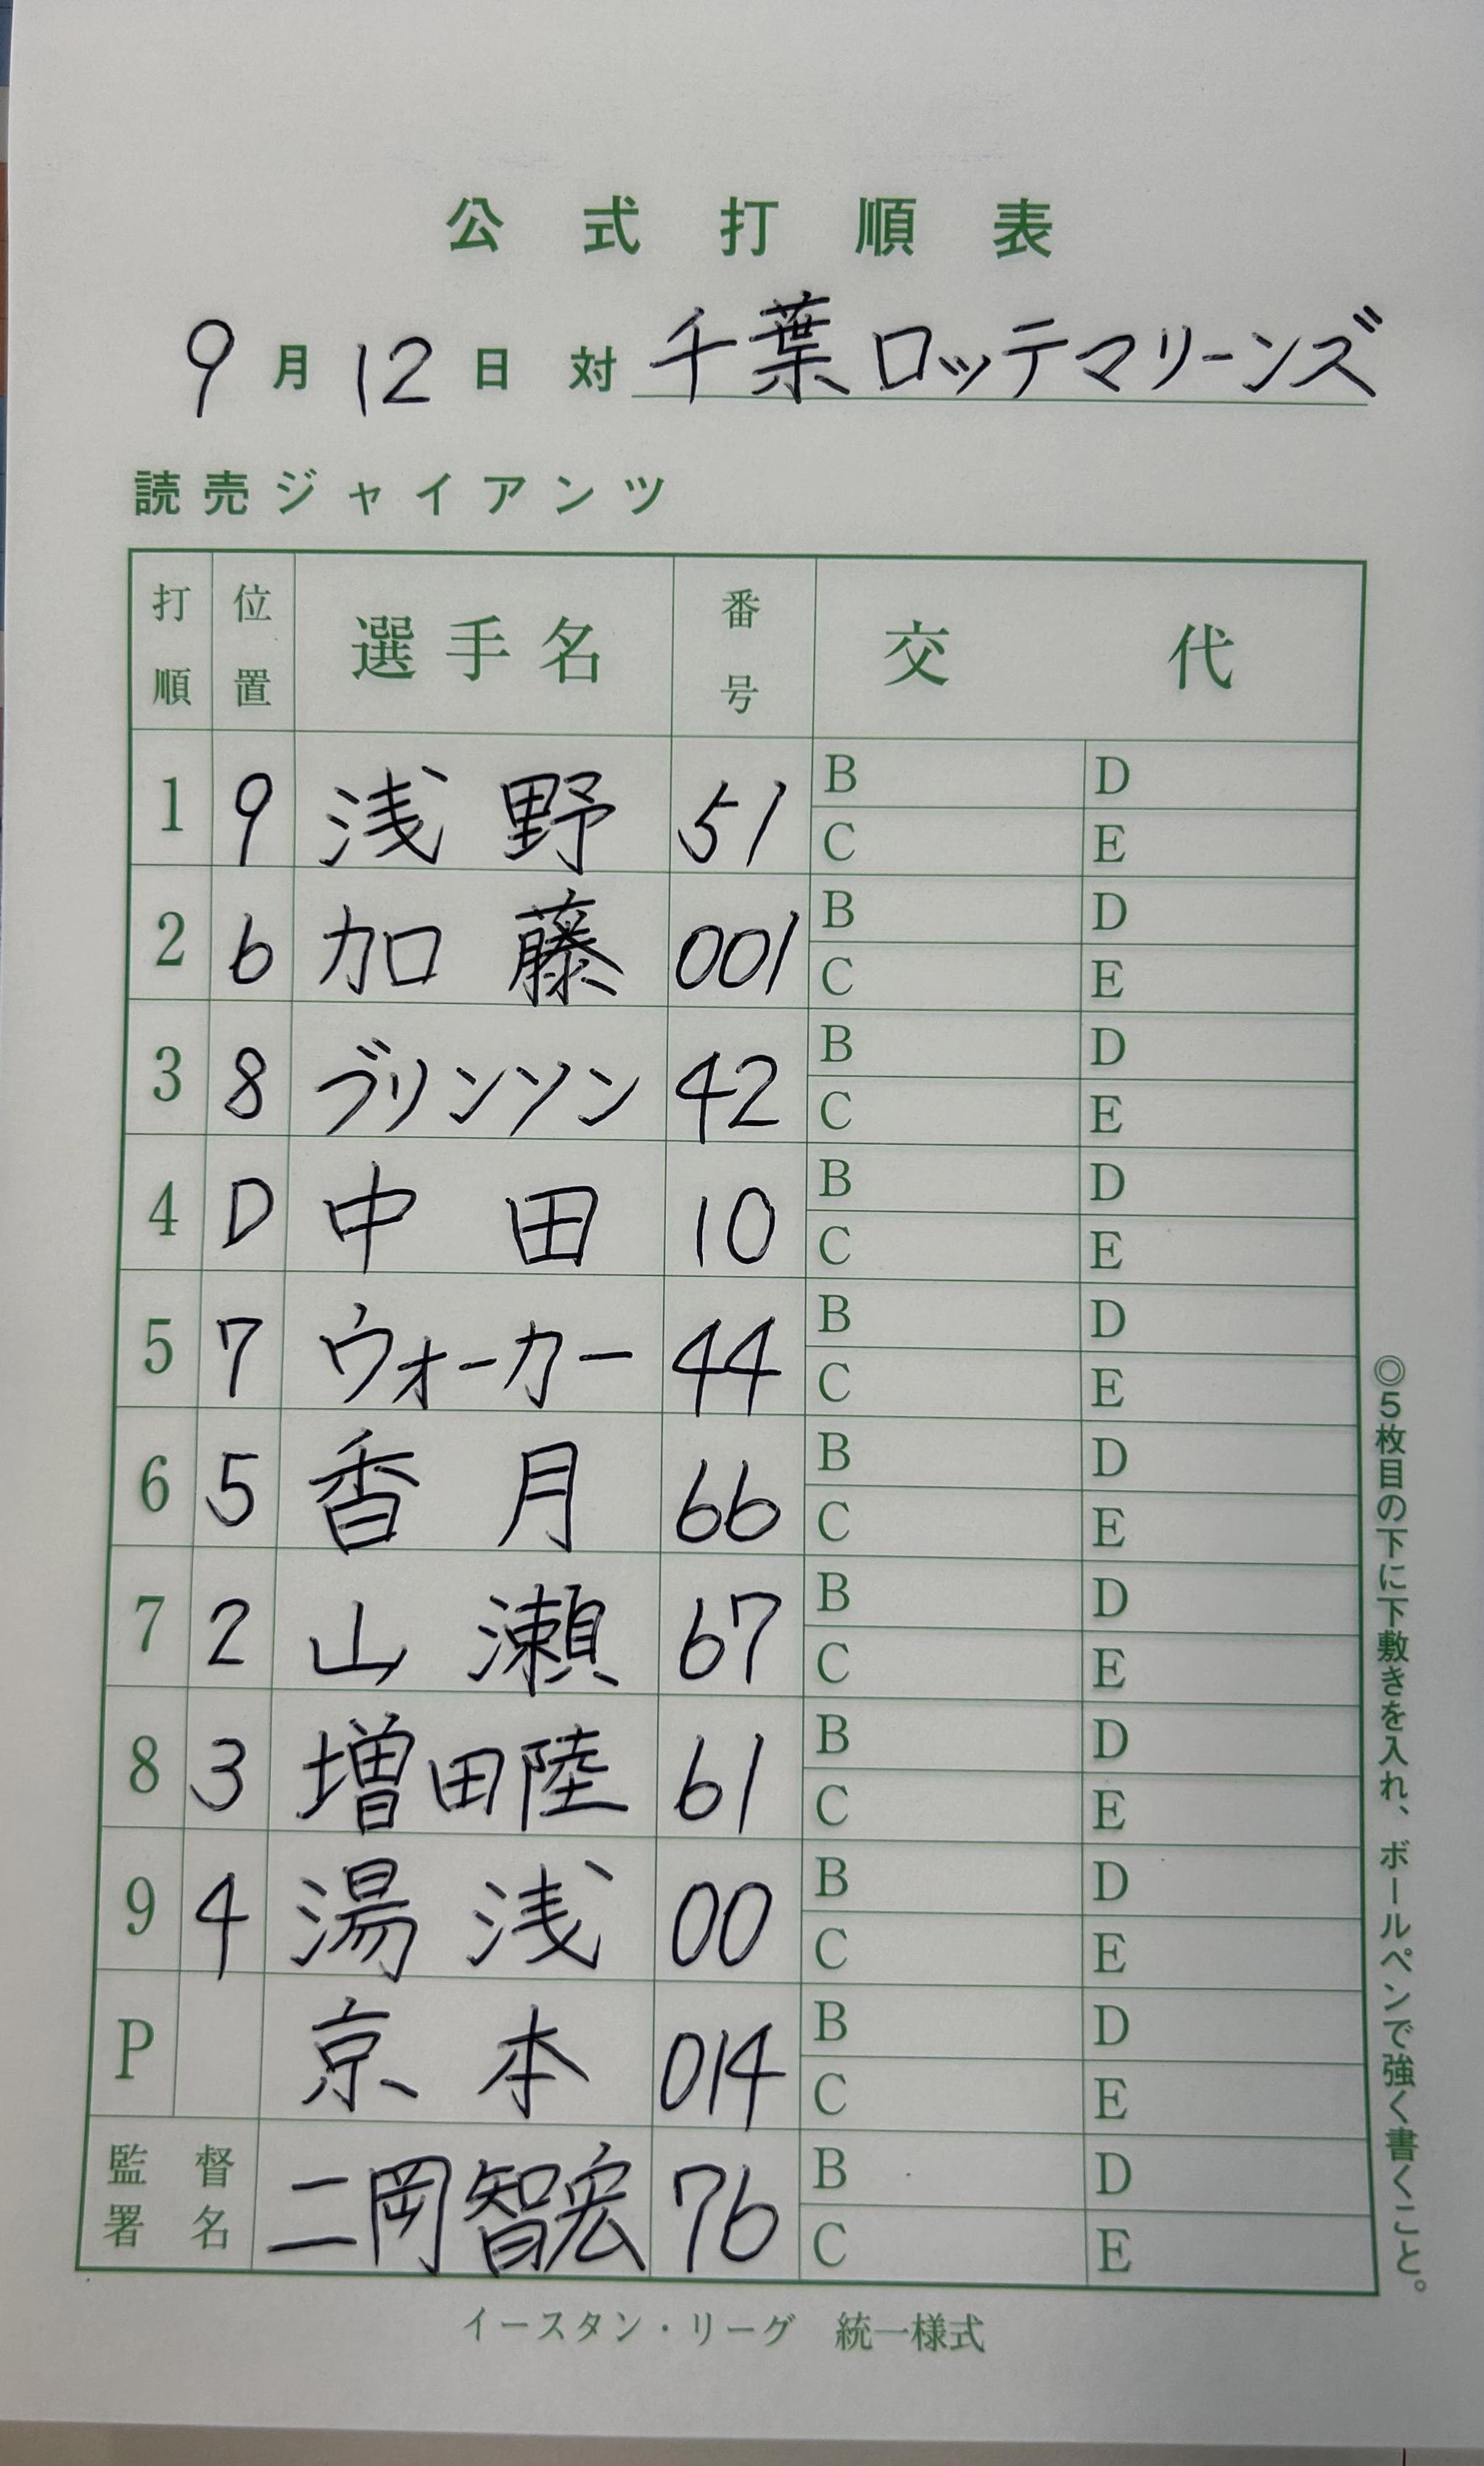 公式打順表
9月12日 対 千葉ロッテマリーンズ
読売ジャイアンツ
打順 位置 選手名 番号 交代
1 9 浅野 51 B D
C E
2 6 加藤 001 B D
C E
3 8 ブリンソン 42 B D
C E
4 D 中田 10 B D
C E
5 7 ウォーカー 44 B D
C E
6 5 香月 66 B D
C E
7 2 山瀬 67 B D
C E
8 3 増田陸 61 B D
C E
9 4 湯浅 00 B D
C E
P 京本 014 B D
C E
監督署名 二岡智宏 76 B D
C E
◎5枚目の下に下敷きを入れ、ボールペンで強く書くこと。
イースタン・リーグ 統一様式